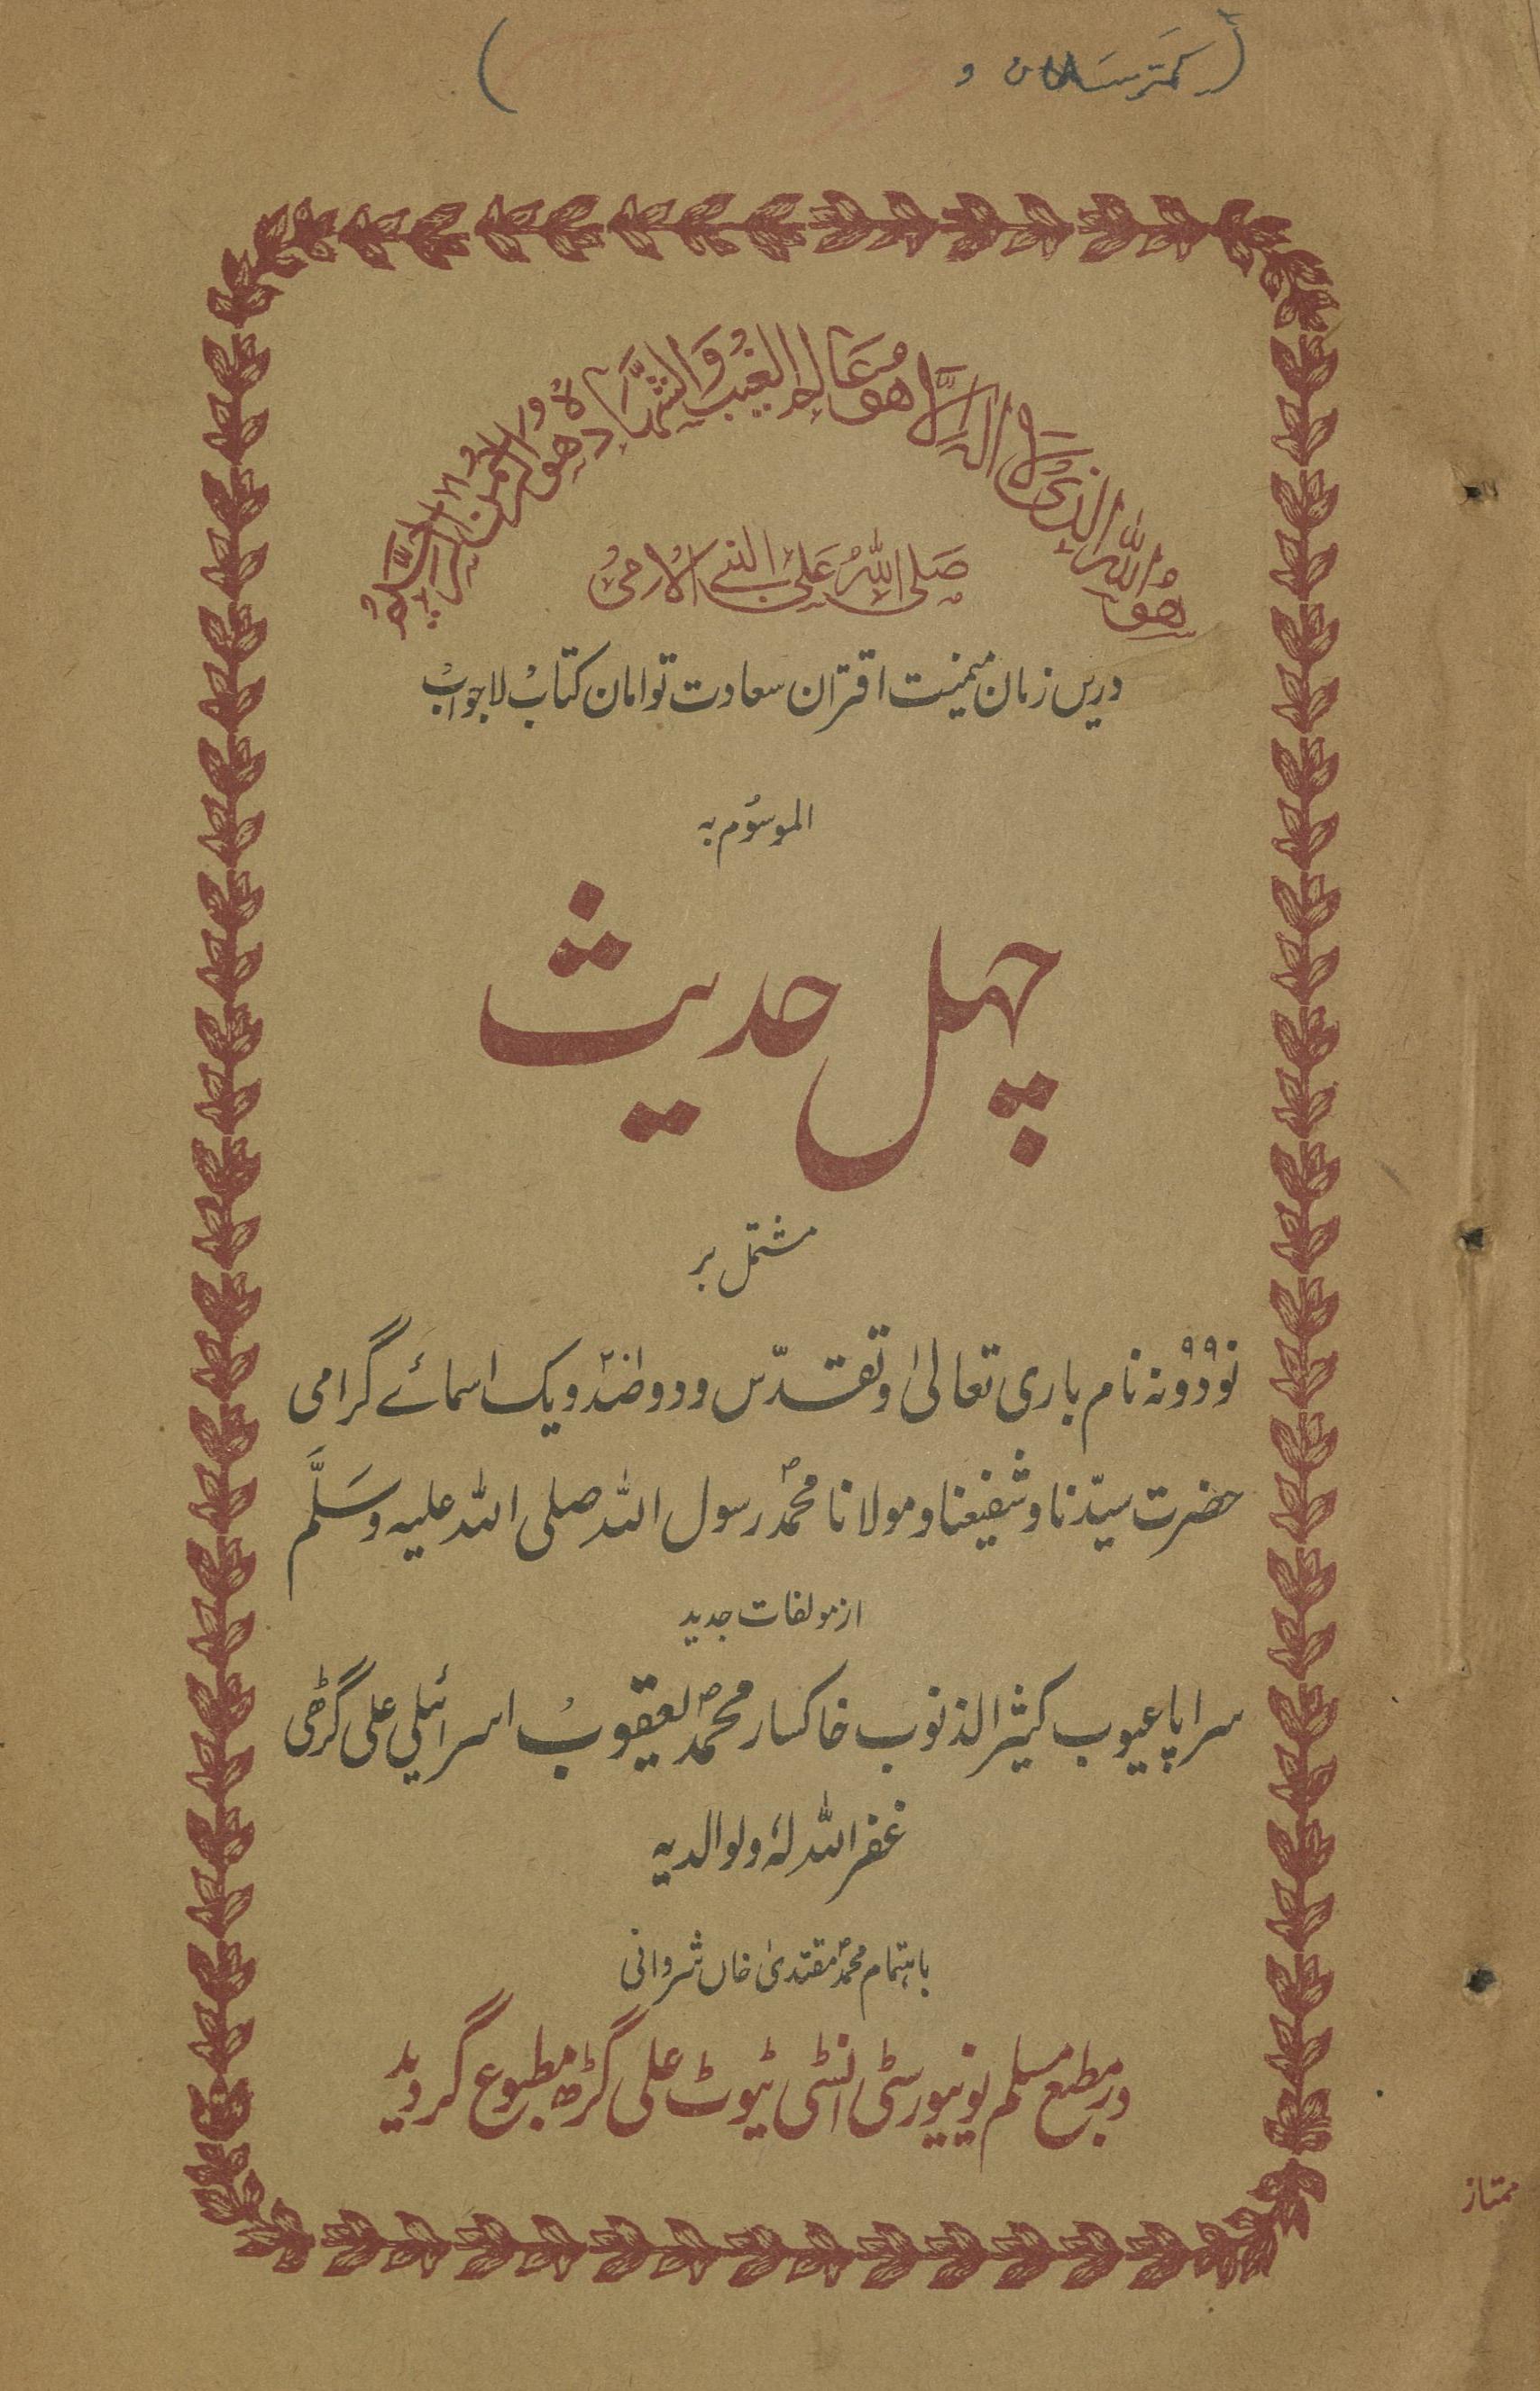 هُوَ اللّٰهُ الَّذِیْ لَا اِلٰهَ اِلَّا هُوَ عَالِمُ الْغَیْبِ وَالشَّهَادَةِ هُوَ الرَّحْمٰنُ الرَّحِیْمُ
صَلَّی اللّٰهُ عَلَی النَّبِیِّ الْاُمِّیِّ
دریں زمان میمنت اقتران سعادت توامان کتاب لاجواب
الموسوم بہ
چہل حدیث
مشتمل بر
نودونہ ۹۹ نام باری تعالیٰ وتقدّس ودوصد ویک اسمائے گرامی
حضرت سیّدنا وشفیعنا ومولانا محمدؐ رسول اللہ صلی اللہ علیہ وسَلَّم
از مولفات جدید
سراپا عیوب کثیر الذنوب خاکسار محمدؐ یعقوب اسرائیلی علی گڑھی
غفر اللہ لہٗ ولوالدیہ
باہتمام محمدؐ مقتدیٰ خاں شروانی
در مطبع مسلم یونیورسٹی انسٹی ٹیوٹ علی گڑھ مطبوع گردید
ممتاز